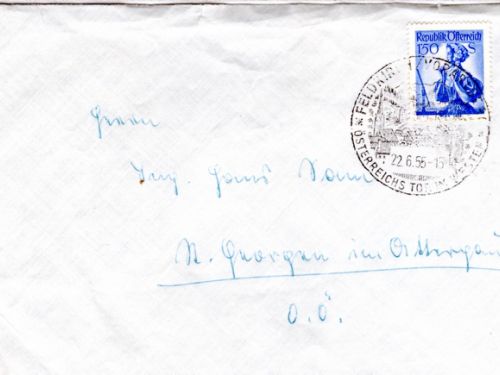 Republik Österreich
1'50 S
FELDKIRCH VORARLBG
22.6.55-15
ÖSTERREICHS TOR IM WESTEN
Herrn
Ing. Hans
St. Georgen im Attergau
O.Ö.